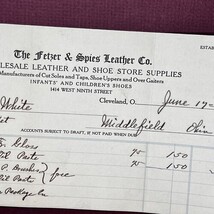 ESTAB
The Fetzer & Spies Leather Co.
LESALE LEATHER AND SHOE STORE SUPPLIES
Manufacturers of Cut Soles and Taps, Shoe Uppers and Over Gaiters
INFANTS' AND CHILDREN'S SHOES
1414 WEST NINTH STREET
Cleveland, O., June 17
White
Middlefield Ohio
ACCOUNTS SUBJECT TO DRAFT, IF NOT PAID WHEN DUE
Gloss 75 1.50
Paste 75 1.50
Brushes free
Paste
Package